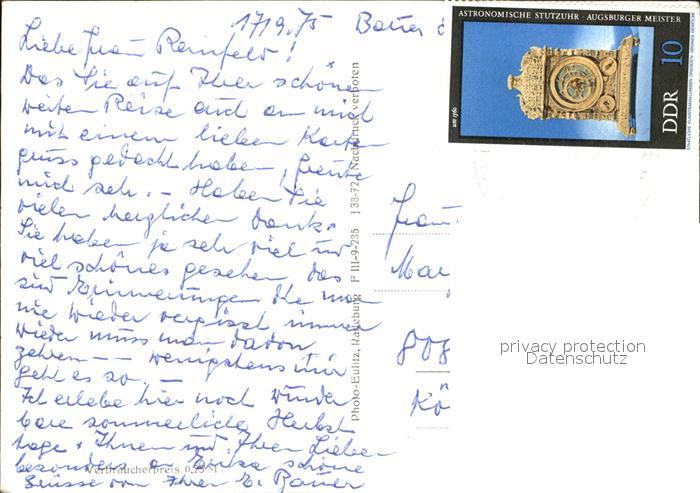 17/9.75
Liebe Frau Reinfeld!
Das Sie auf Ihrer schönen
weiten Reise auch an mich
mit einem lieben Karten
gruss gedacht haben, freute
mich sehr. – Haben Sie
vielen herzlichen Dank.
Sie haben ja sehr viel und
viel schönes gesehen, das
sind Erinnerungen die man
nie wieder vergisst immer
wieder muss man davon
zehren — wenigstens mir
geht es so. –
Ich erlebe hier noch wunder
bare sommerliche Herbst
tage. Ihnen und Ihren Lieben
besonders schöne
Grüsse von Ihrer E. Bauer
Verbraucherpreis 0,25 M
Photo-Eulitz, Radeburg F III-9-235 J 33-72 Nachdruck verboten
Bauer
ASTRONOMISCHE STUTZUHR · AUGSBURGER MEISTER
um 1560
DDR 10
Frau
808
Kö
privacy protection
Datenschutz